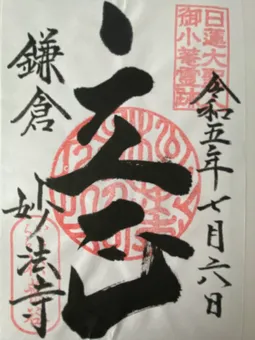 日蓮大聖
御小菴霊跡
令和五年七月六日
立正
鎌倉
妙法寺